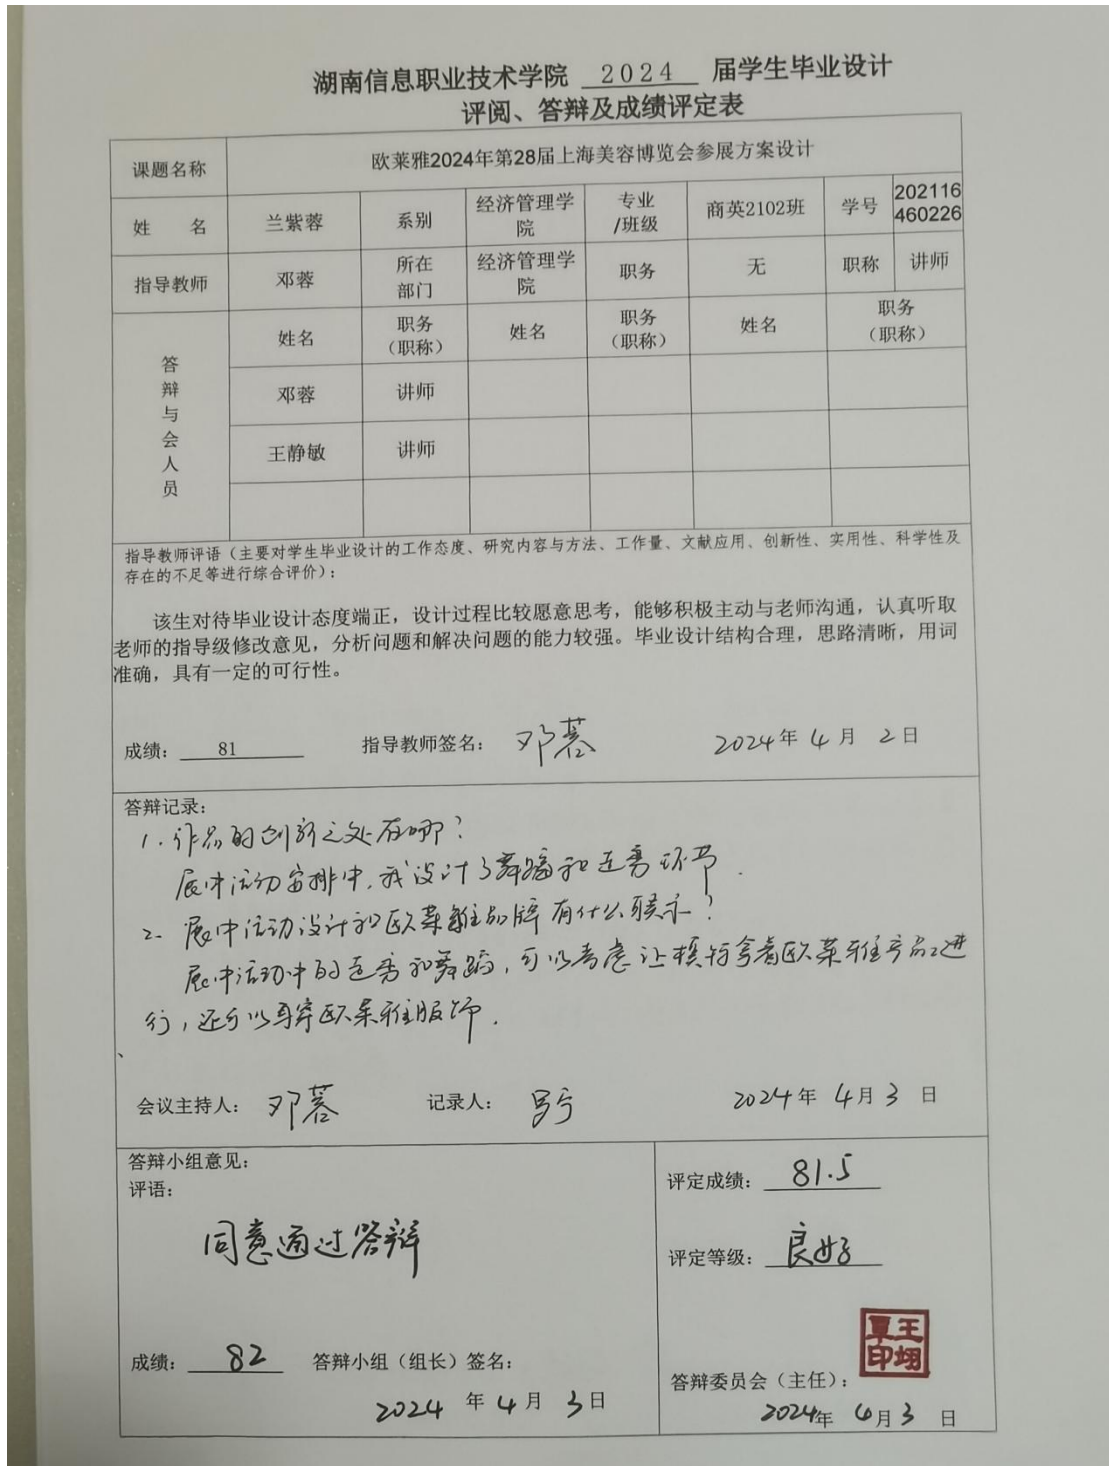 湖南信息职业技术学院 2024 届学生毕业设计
评阅、答辩及成绩评定表
课题名称 欧莱雅2024年第28届上海美容博览会参展方案设计
姓 名 兰紫蓉 系别 经济管理学院 专业/班级 商英2102班 学号 202116460226
指导教师 邓蓉 所在部门 经济管理学院 职务 无 职称 讲师
答辩与会人员
姓名 职务（职称） 姓名 职务（职称） 姓名 职务（职称）
邓蓉 讲师
王静敏 讲师
指导教师评语（主要对学生毕业设计的工作态度、研究内容与方法、工作量、文献应用、创新性、实用性、科学性及
存在的不足等进行综合评价）：
该生对待毕业设计态度端正，设计过程比较愿意思考，能够积极主动与老师沟通，认真听取
老师的指导级修改意见，分析问题和解决问题的能力较强。毕业设计结构合理，思路清晰，用词
准确，具有一定的可行性。
成绩： 81 指导教师签名： 邓蓉 2024年 4月 2日
答辩记录：
1. 作品的创新之处在哪？
展中活动安排中，我设计了舞蹈和走秀环节．
2. 展中活动设计和欧莱雅品牌有什么联系？
展中活动中的走秀和舞蹈，可以考虑让模特拿着欧莱雅产品进
行，还可以身穿欧莱雅服饰．
会议主持人： 邓蓉 记录人： 2024年 4月 3日
答辩小组意见：
评语：
同意通过答辩
成绩： 82 答辩小组（组长）签名：
2024 年 4月 3日
评定成绩： 81.5
评定等级： 良好
答辩委员会（主任）：
2024年 4月 3日